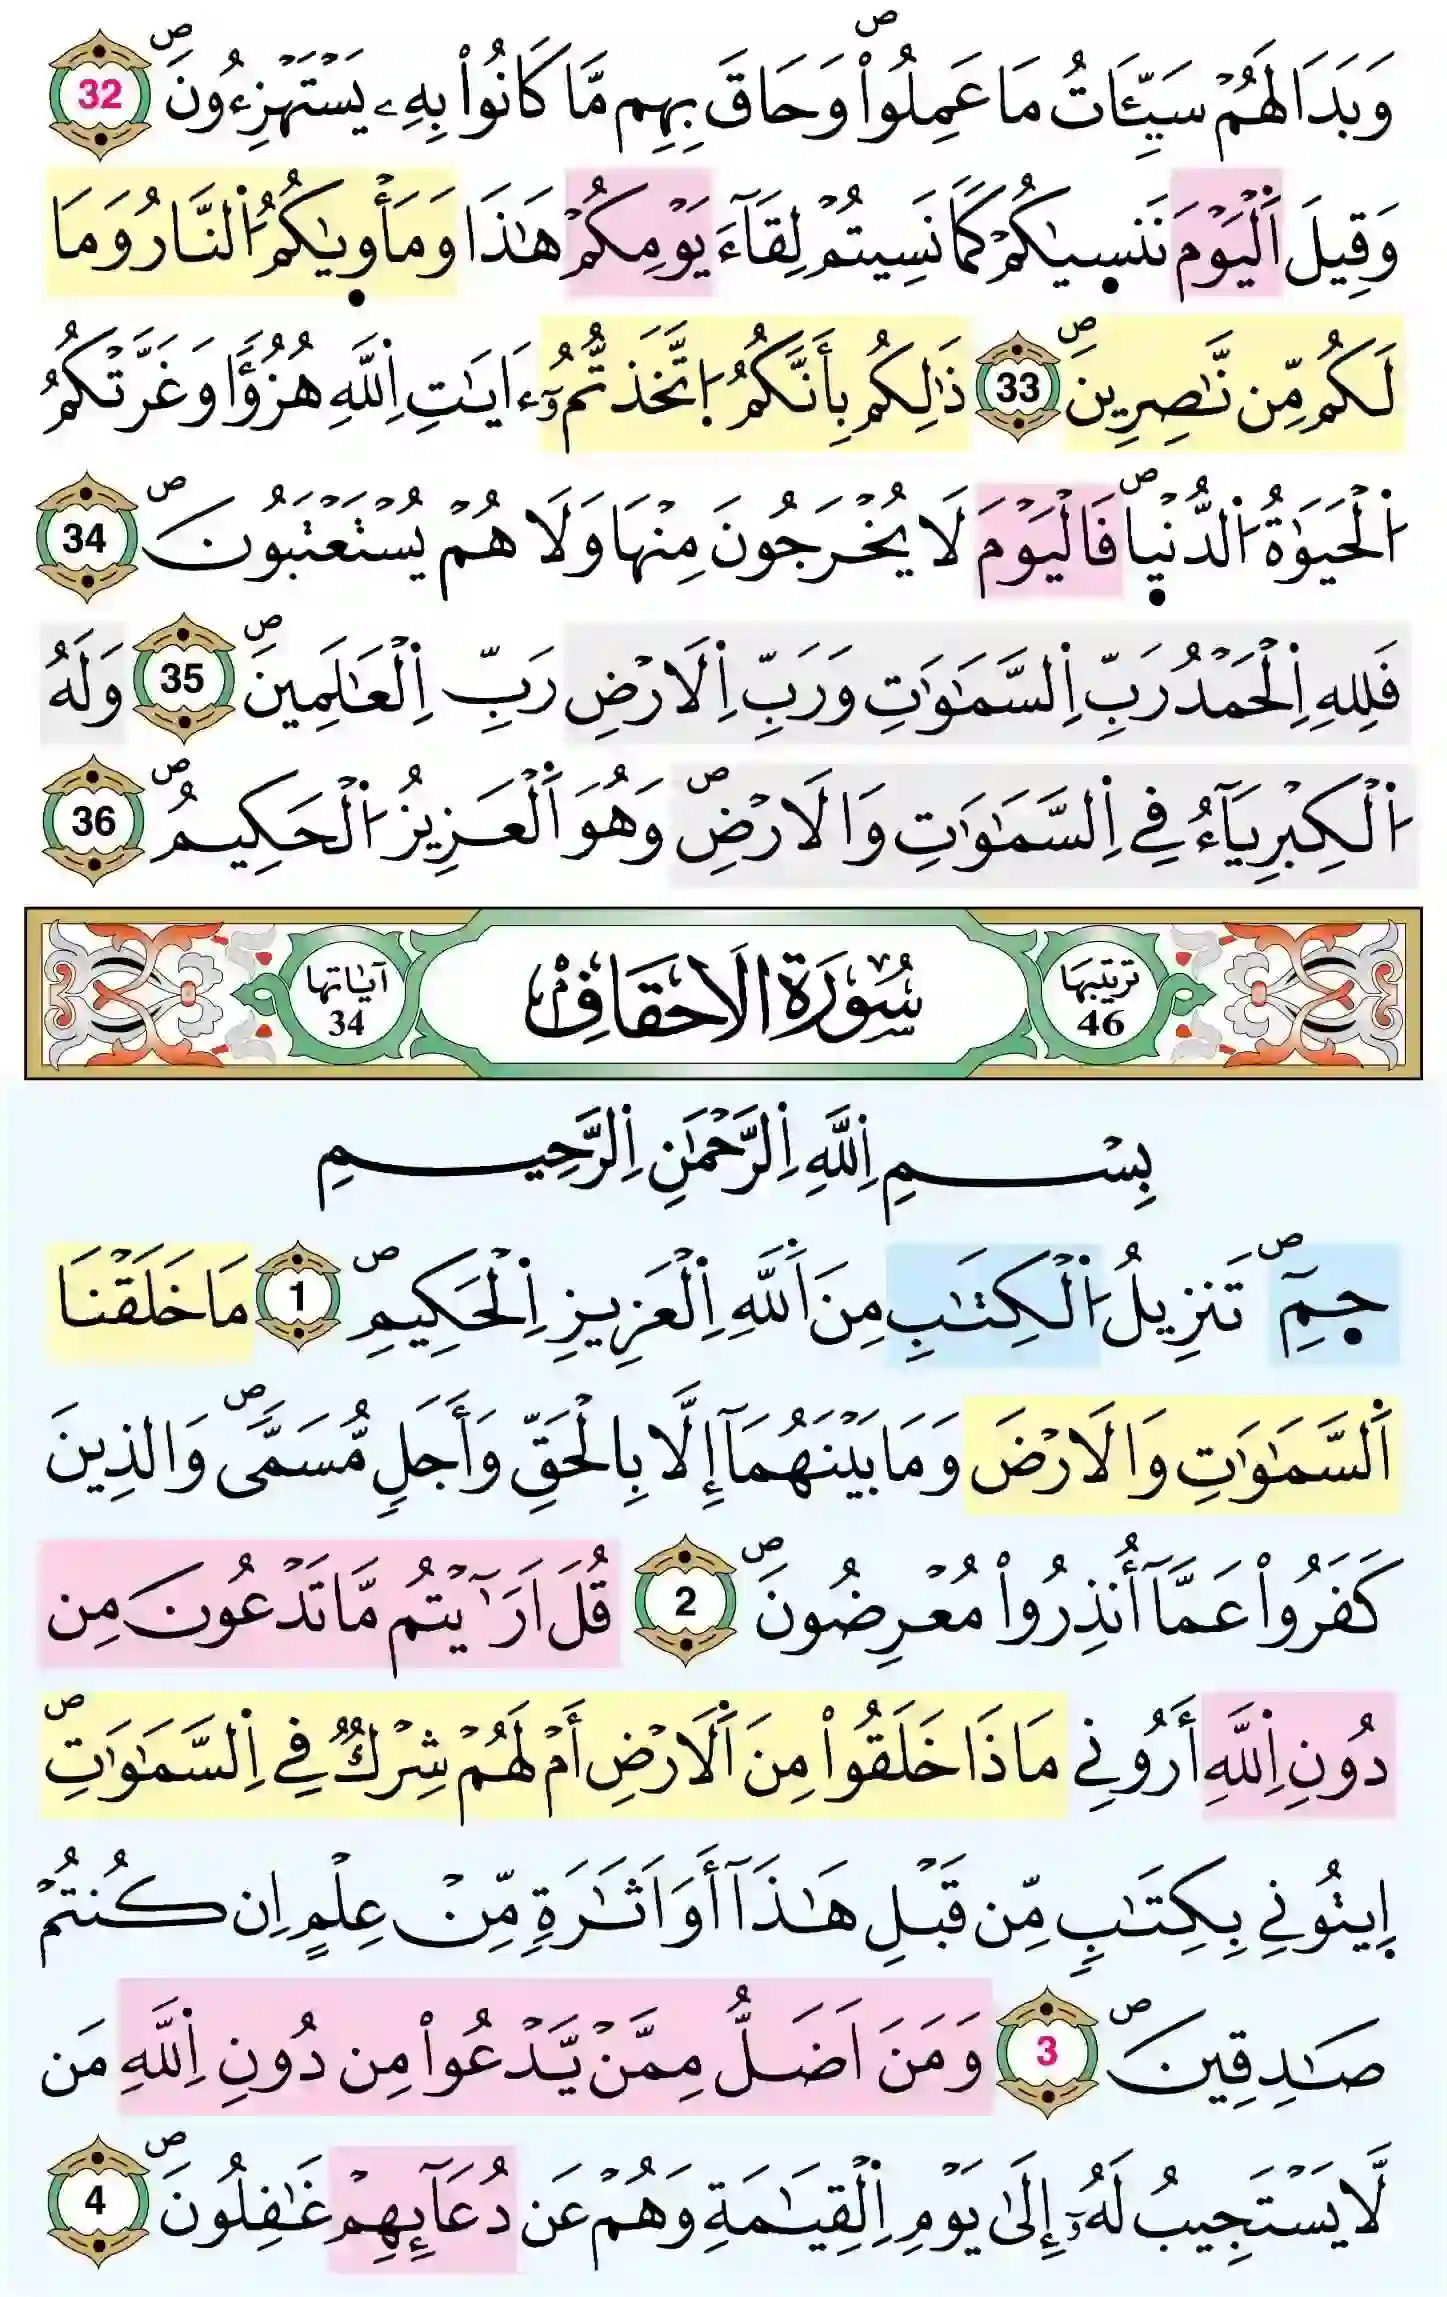 وَبَدَا لَهُمْ سَيِّـَٔاتُ مَا عَمِلُواْۖ وَحَاقَ بِهِم مَّا كَانُواْ بِهِۦ يَسْتَهْزِءُونَۖ 32
وَقِيلَ اَ۬لْيَوْمَ نَنس۪يٰكُمْ كَمَا نَسِيتُمْ لِقَآءَ يَوْمِكُمْ هَٰذَا وَمَأْو۪يٰكُمُ اُ۬لنَّارُ وَمَا
لَكُم مِّن نَّٰصِرِينَۖ 33 ذَٰلِكُم بِأَنَّكُمُ اُ۪تَّخَذتُّمُۥٓ ءَايَٰتِ اِ۬للَّهِ هُزُؤاٗ وَغَرَّتْكُمُ
اُ۬لْحَيَوٰةُ اُ۬لدُّنْي۪اۖ فَالْيَوْمَ لَا يُخْرَجُونَ مِنْهَا وَلَا هُمْ يُسْتَعْتَبُونَۖ 34
فَلِلهِ اِ۬لْحَمْدُ رَبِّ اِ۬لسَّمَٰوَٰتِ وَرَبِّ اِ۬لَارْضِ رَبِّ اِ۬لْعَٰلَمِينَۖ 35 وَلَهُ
اُ۬لْكِبْرِيَآءُ فِے اِ۬لسَّمَٰوَٰتِ وَالَارْضِۖ وَهُوَ اَ۬لْعَزِيزُ اُ۬لْحَكِيمُۖ 36
ترتيبها 46 سُورَةُ الَاحْقَافِ آياتها 34
بِسْمِ اِ۬للَّهِ اِ۬لرَّحْمَٰنِ اِ۬لرَّحِيمِ
ح۪مِٓۖ تَنزِيلُ اُ۬لْكِتَٰبِ مِنَ اَ۬للَّهِ اِ۬لْعَزِيزِ اِ۬لْحَكِيمِۖ 1 مَا خَلَقْنَا
اَ۬لسَّمَٰوَٰتِ وَالَارْضَ وَمَا بَيْنَهُمَآ إِلَّا بِالْحَقِّ وَأَجَلٖ مُّسَمّىٗۖ وَالذِينَ
كَفَرُواْ عَمَّآ أُنذِرُواْ مُعْرِضُونَۖ 2 قُلَ اَرَٰٓيْتُم مَّا تَدْعُونَ مِن
دُونِ اِ۬للَّهِ أَرُونِے مَاذَا خَلَقُواْ مِنَ اَ۬لَارْضِ أَمْ لَهُمْ شِرْكٞ فِے اِ۬لسَّمَٰوَٰتِۖ
اِ۪يتُونِے بِكِتَٰبٖ مِّن قَبْلِ هَٰذَآ أَوَ اَثَٰرَةٖ مِّنْ عِلْمٍ اِن كُنتُمْ
صَٰدِقِينَۖ 3 وَمَنَ اَضَلُّ مِمَّنْ يَّدْعُواْ مِن دُونِ اِ۬للَّهِ مَن
لَّا يَسْتَجِيبُ لَهُۥٓ إِلَىٰ يَوْمِ اِ۬لْقِيَٰمَةِ وَهُمْ عَن دُعَآئِهِمْ غَٰفِلُونَۖ 4